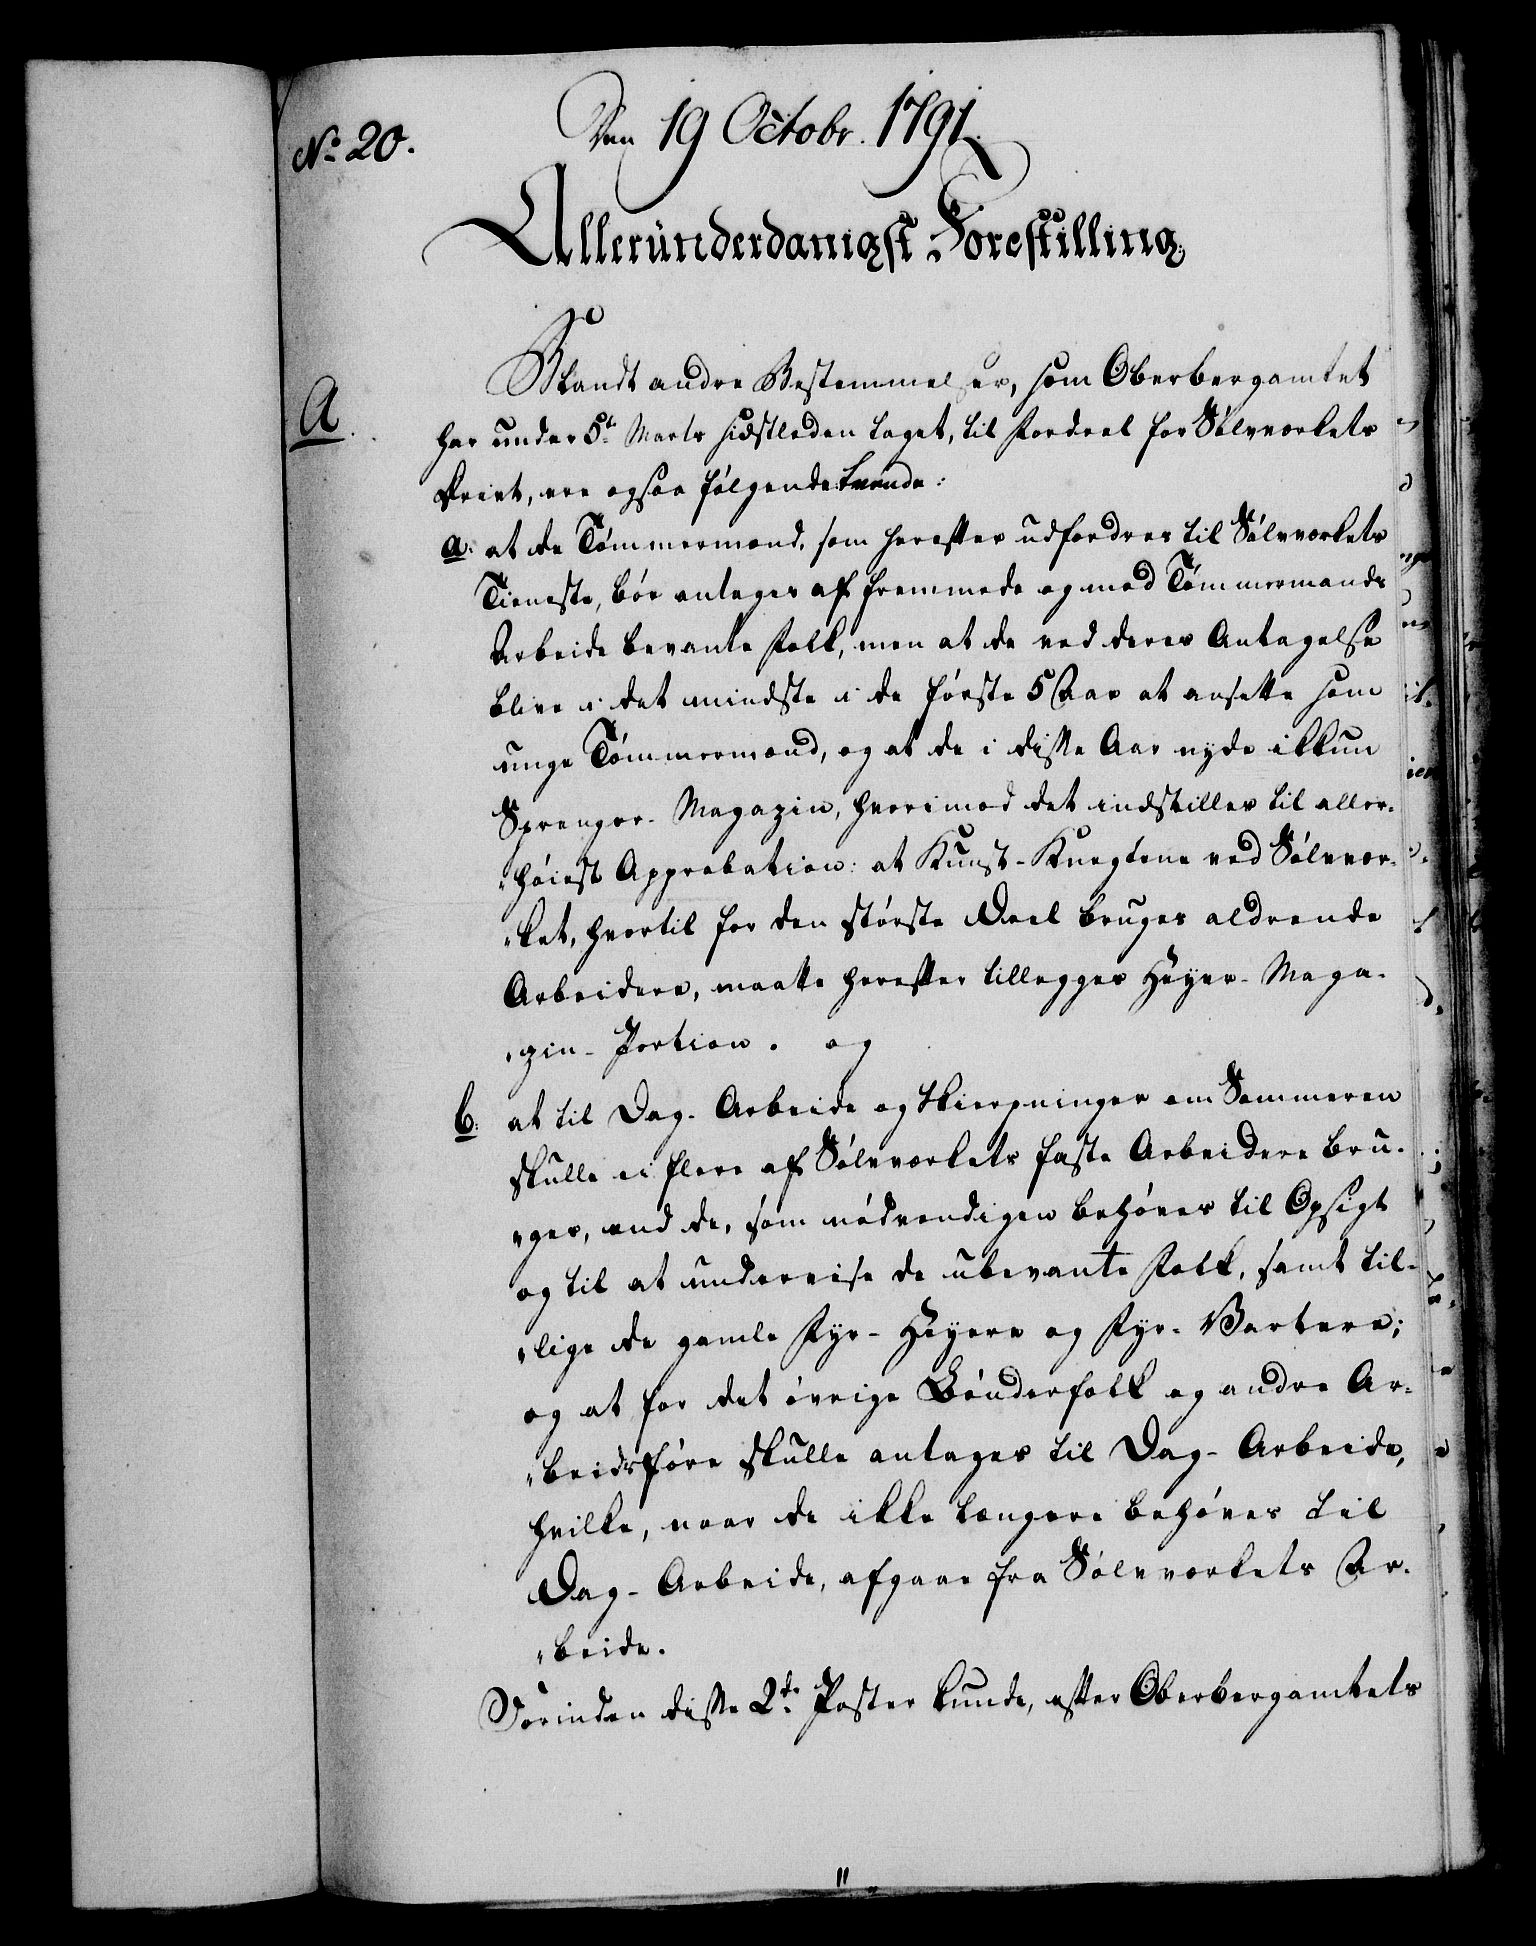 No 20.
Den 19 Octobr. 1791.
Alleründerdanigst Forestilling.
A.
Blandt andre Bestemmelser, som Oberbergamtet
har under 5t Marts sidstleden taget, til Fordeel for Sølvverkets
Drivt, ere ogsaa følgende tvende:
a: at de Tømmermænd, som herefter udfordres til Sølvverkets
Tieneste, bør antages af fremmede og med Tømmermands
Arbeide bevante Folk, men at de ved deres Antagelse
blive i det mindste i de første 5 Aar at ansette som
unge Tømmermænd, og at de i disse Aar nyde ikkun
Sprenger- Magazin, hvorimod det indstilles til aller-
"høiest Approbation: at Kunst-Knegtene ved Sølvver-
"ket, hvortil for den største Deel bruges aldrende
Arbeidere, maatte herefter tillegges Heyer- Maga-
"zin- Portion. og
b: at til Dag- Arbeide og Skierpninger om Sommeren
skulle ei flere af Sølvverkets faste Arbeidere bru-
"ges, end de, som nødvendigen behøves til Opsigt
og til at underviise de ubevante Folk, samt til-
"lige de gamle Fyr- Heyere og Fyr- Vartere;
og at for det øvrige Bønderfolk og andre Ar-
"beidsføre skulle antages til Dag- Arbeide,
hvilke, naar de ikke længere behøves til
Dag- Arbeide, afgaae fra Sølvverkets Ar-
"beide.
Forinden disse 2de Poster kunde, efter Oberbergamtets